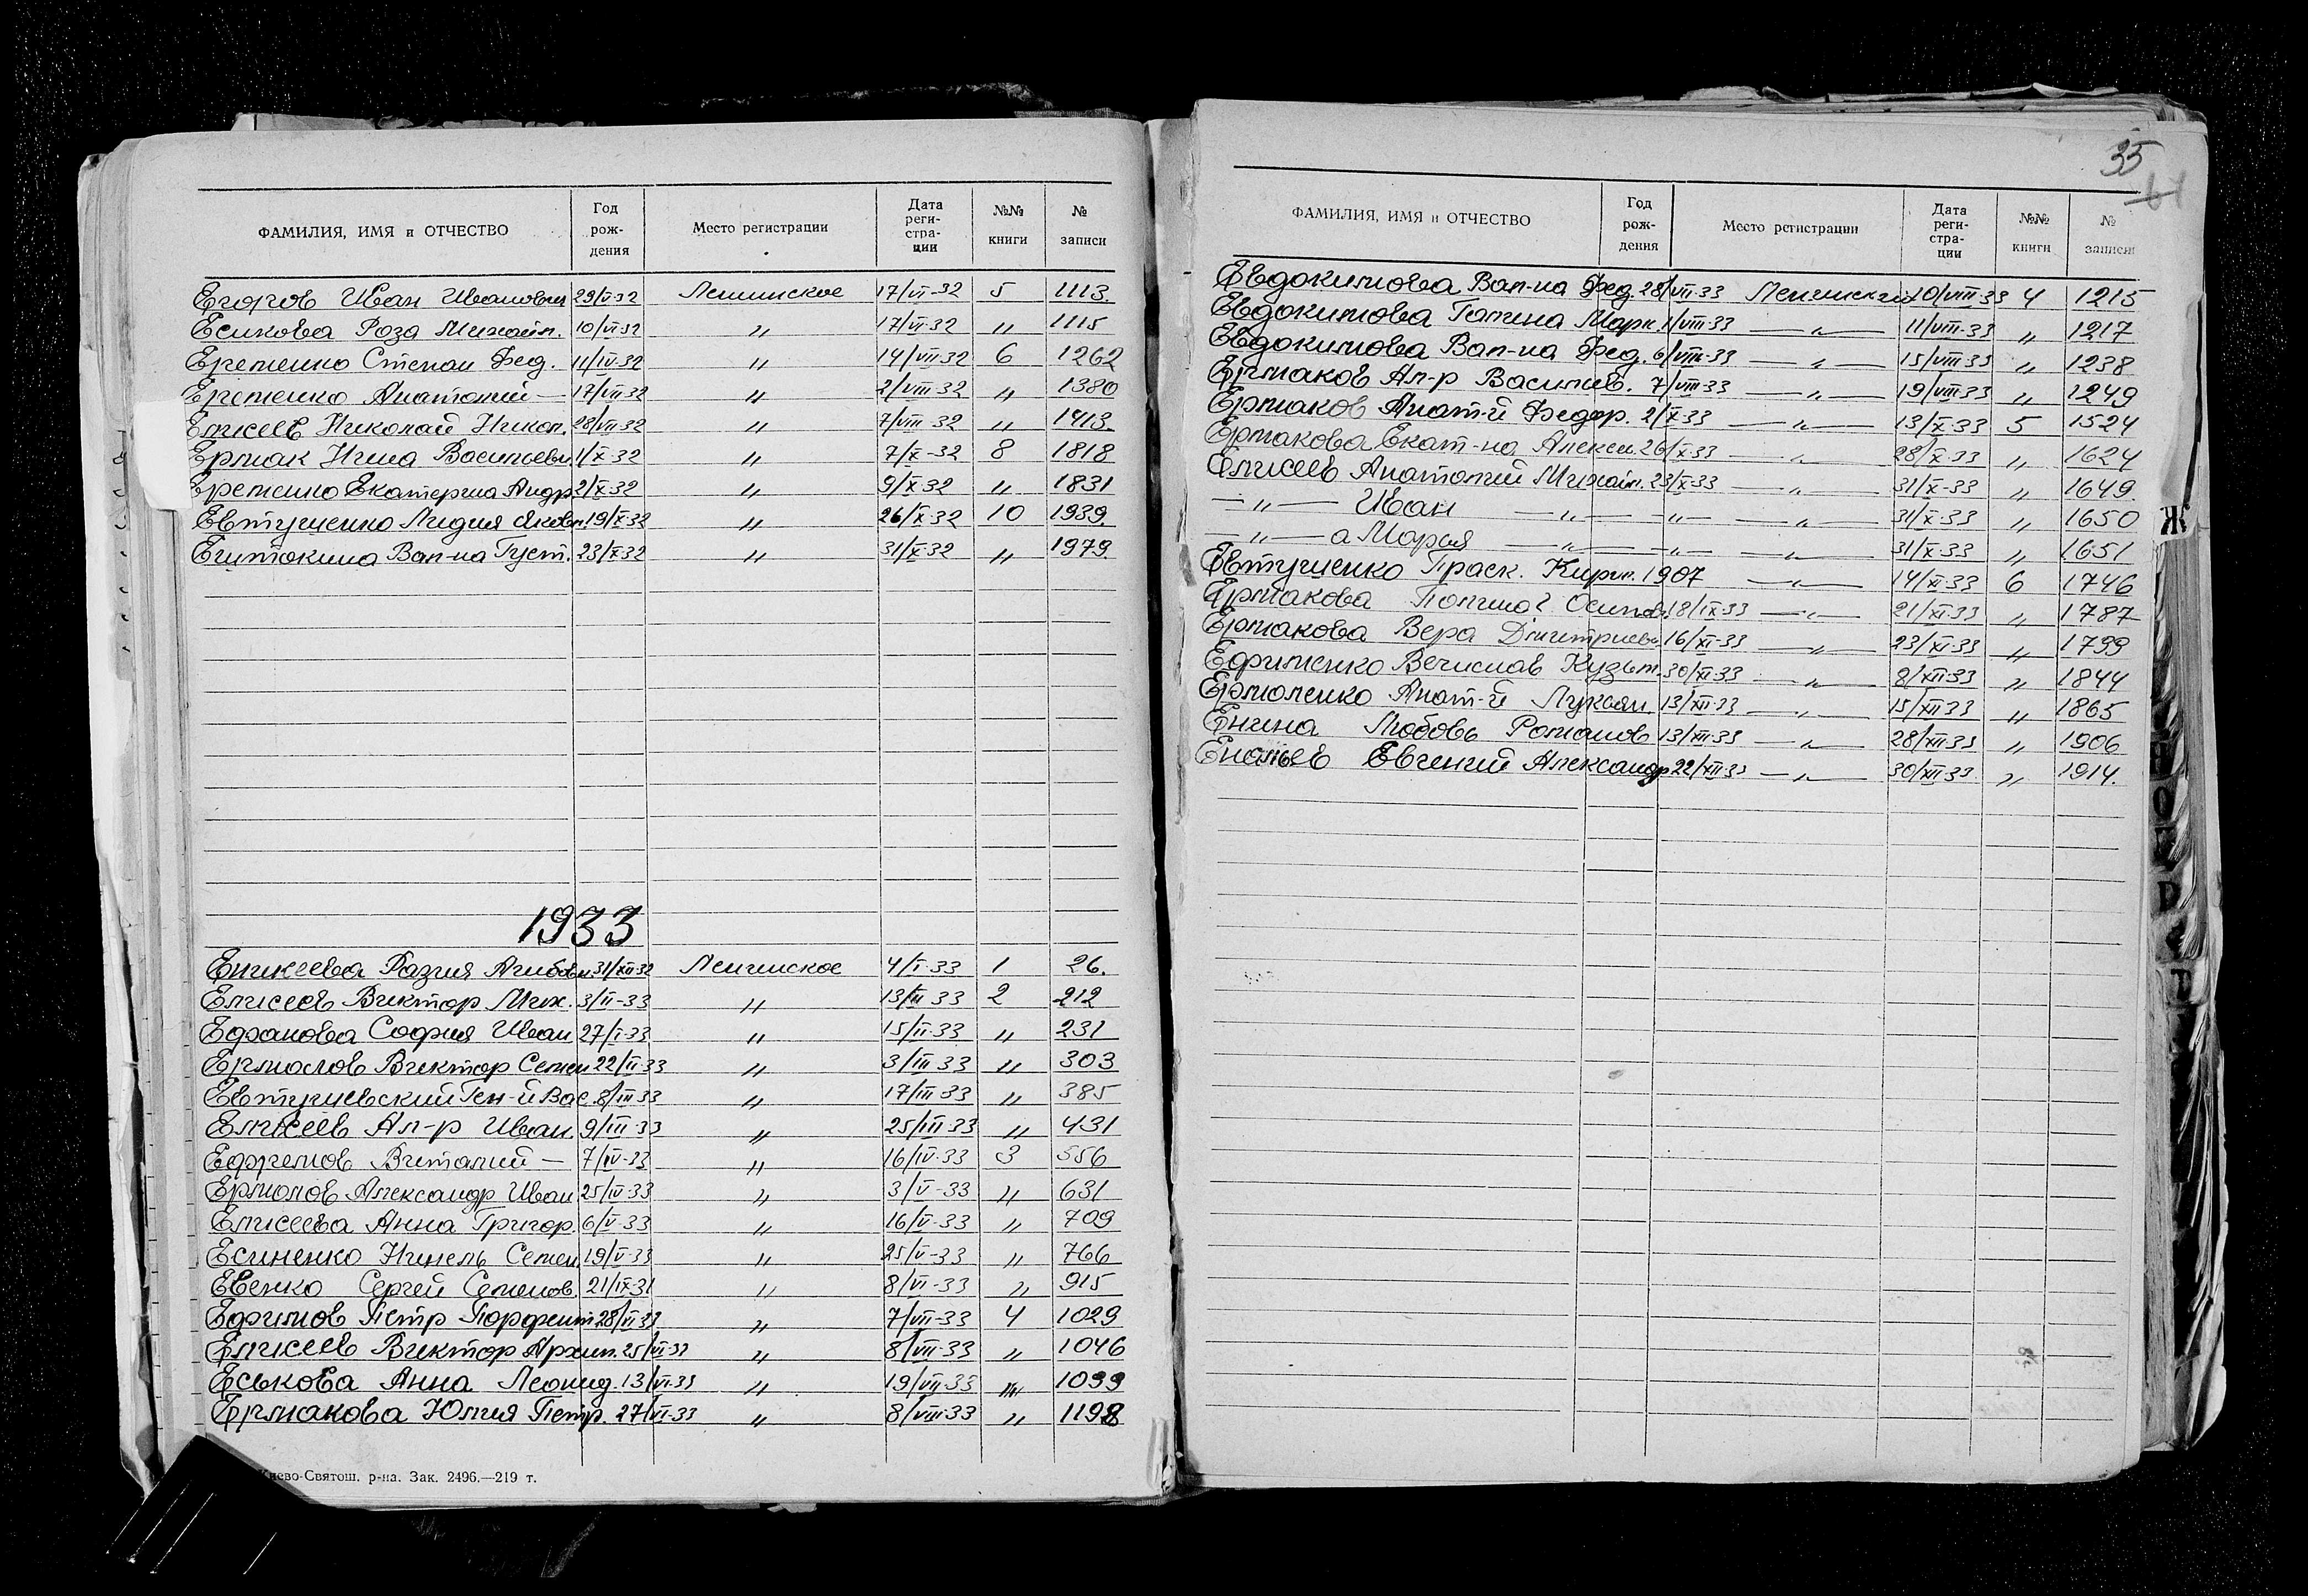 ФАМИЛИЯ, ИМЯ и ОТЧЕСТВО Год рож- дения Место регистрации Дата реги- стра- ции №№ книги № записи
Егоров Иван Иванович 29/V-32 Ленинское 17/VI-32 5 1113.
Есикова Роза Михайл. 10/VI-32 〃 17/VI-32 〃 1115
Еременко Степан Фед. 11/IV-32 〃 14/VII-32 6 1262
Еременко Анатолий — 17/VII-32 〃 2/VIII-32 〃 1380
Елисеев Николай Никол. 28/VII-32 〃 7/VIII-32 〃 1413.
Ермак Нина Васильевн. 1/X-32 〃 7/X-32 8 1818
Еременко Екатерина Андр. 2/X-32 〃 9/X-32 〃 1831
Евтушенко Лидия Яковл. 19/X-32 〃 26/X-32 10 1939.
Валн-на Густ. 23/X-32 〃 31/X-32 〃 1979.
1933
Еникеева Разия 31/XII-32 Ленинское 4/I-33 1 26.
Елисеев Виктор Мих. 3/II-33 〃 13/II-33 2 212
Ефанова София Иван 27/I-33 〃 15/II-33 〃 231
Ермолов Виктор Семен 22/II-33 〃 3/III-33 〃 303
Евтушевский Ген-й Вас. 8/III-33 〃 17/III-33 〃 385
Елисеев Ал-р Иван. 9/III-33 〃 25/III-33 〃 431
Ефремов Виталий — 7/IV-33 〃 16/IV-33 3 556
Ермолов Александр Иван 25/IV-33 〃 3/V-33 〃 631
Елисеева Анна Григор. 6/V-33 〃 16/V-33 〃 709
Есиненко Нинель Семен. 19/V-33 〃 25/V-33 〃 766
Евенко Сергей Семенов. 21/IX-31 〃 8/VI-33 〃 915
Ефимов Петр Порфент 28/VI-33 〃 7/VII-33 4 1029
Елисеев Виктор Архип. 25/VI-33 〃 8/VII-33 〃 1046
Еськова Анна Леонид. 13/VI-33 〃 19/VII-33 〃 1099
Ермакова Юлия Петр. 27/VI-33 〃 8/VIII-33 〃 1198
Киево-Святош. р-на. Зак. 2496.—219 т.
35
61
ФАМИЛИЯ, ИМЯ и ОТЧЕСТВО Год рож- дения Место регистрации Дата реги- стра- ции №№ книги № записи
Евдокимова Вал-на Фед. 28/VII-33 Ленинский 10/VIII-33 4 1215
Евдокимова Галина Марк. 1/VIII-33 —〃— 11/VIII-33 〃 1217
Евдокимова Вал-на Фед. 6/VIII-33 —〃— 15/VIII-33 〃 1238
Ермаков Ал-р Васильев. 7/VIII-33 —〃— 19/VIII-33 〃 1249
Ермаков Анат-й Федор. 2/X-33 —〃— 13/X-33 5 1524
Ермакова Екат-на Алексеи. 26/X-33 —〃— 28/X-33 〃 1624
Елисеев Анатолий Михайл. 23/X-33 —〃— 31/X-33 〃 1649.
—〃— Иван —〃— —〃— —〃— 31/X-33 〃 1650
—〃— а Мария —〃— —〃— —〃— 31/X-33 〃 1651
Евтушенко Праск. Кирил. 1907 —〃— 14/XI-33 6 1746
Ермакова Полина Осипов. 18/IX-33 —〃— 21/XI-33 〃 1787
Ермакова Вера Дмитриевн. 16/XI-33 —〃— 23/XI-33 〃 1799
Ефименко Вечислав Кузьм. 30/XI-33 —〃— 8/XII-33 〃 1844
Ермоленко Анат-й Лукьян. 13/XII-33 —〃— 15/XII-33 〃 1865
Енина Любовь Романов 13/XII-33 —〃— 28/XII-33 〃 1906
Евгений Александр 22/XII-33 —〃— 30/XII-33 〃 1914.
Ж